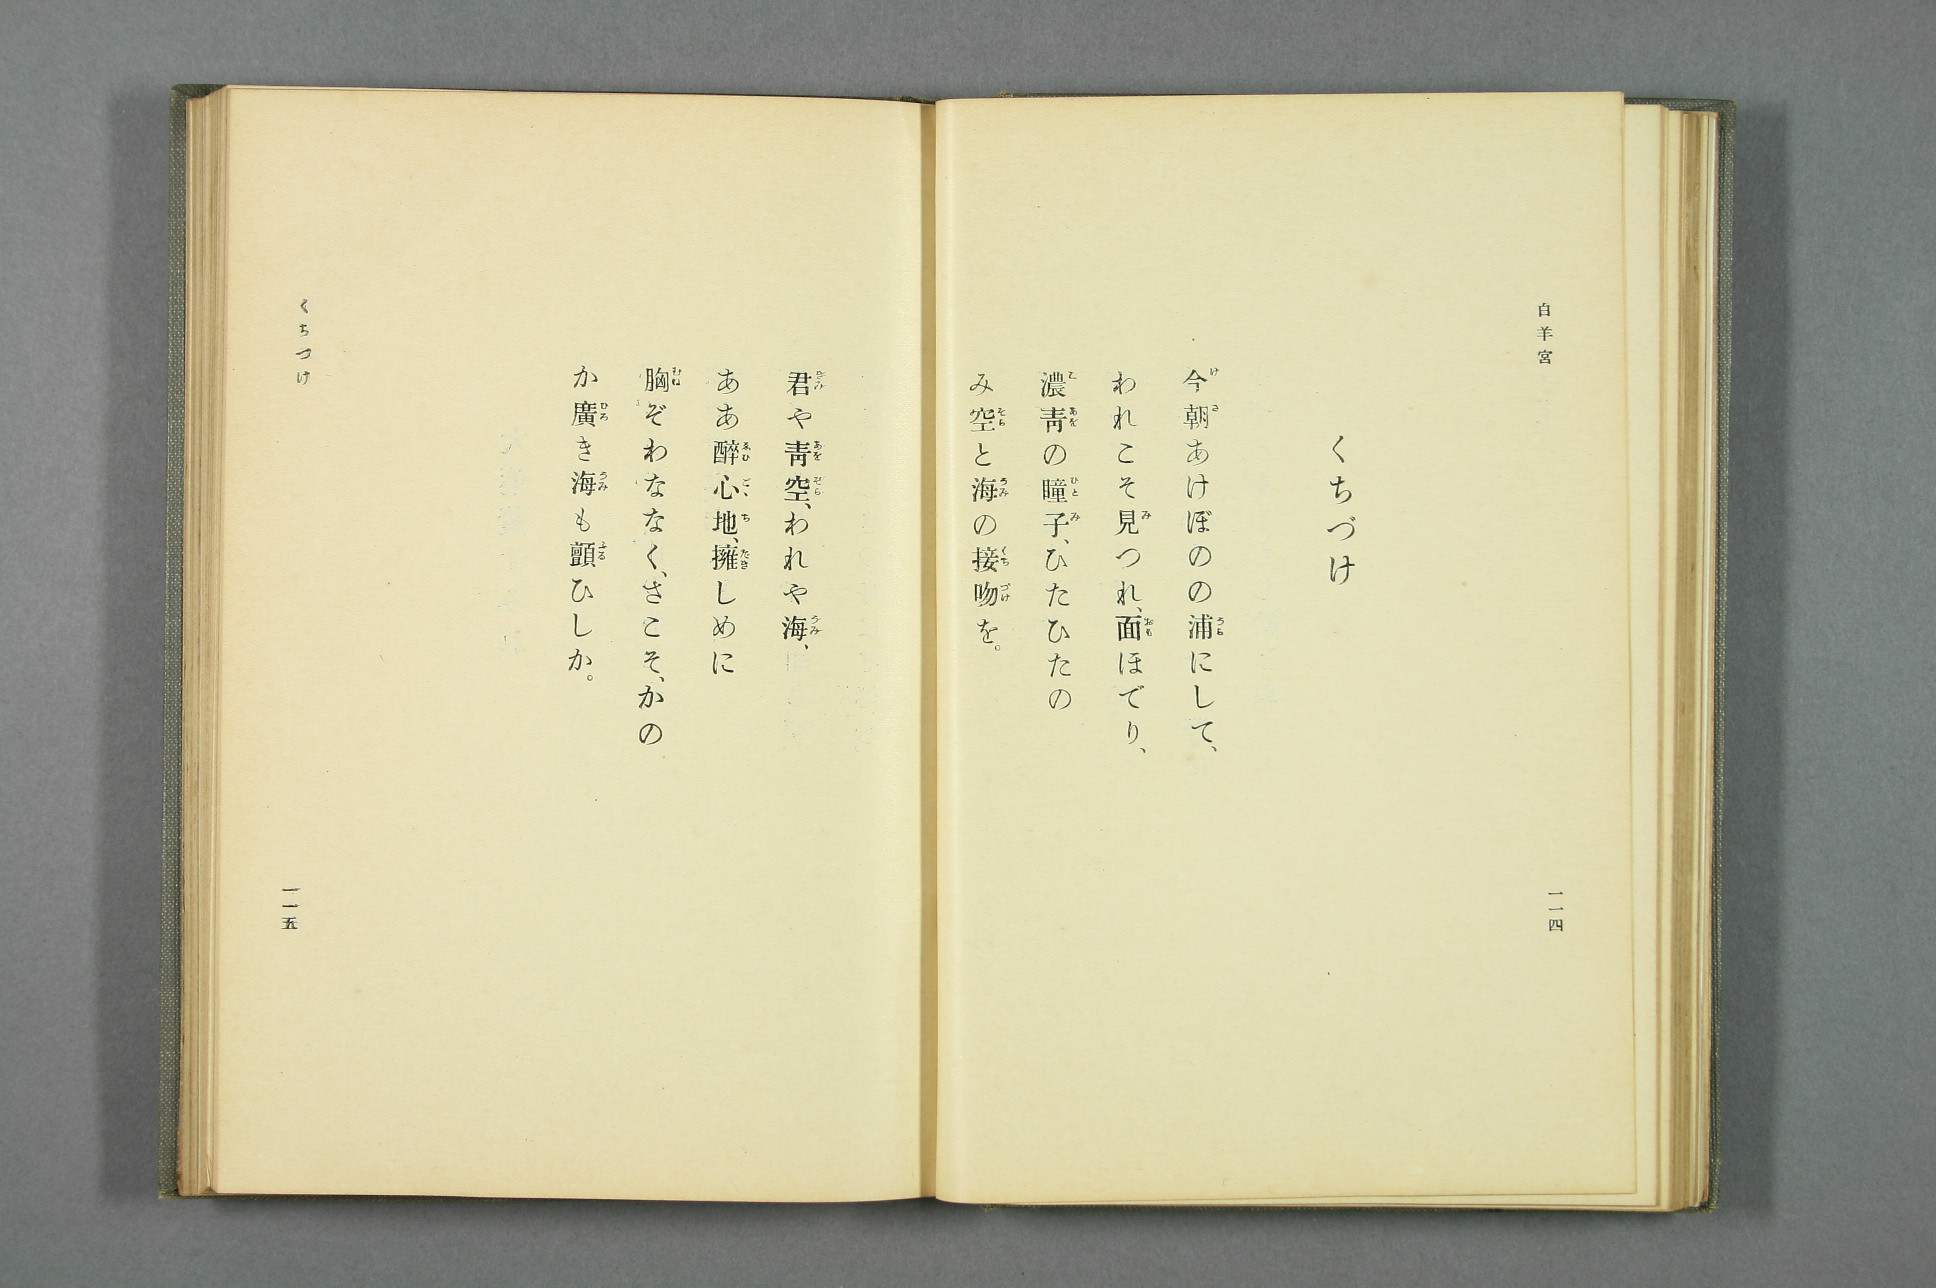 白羊宮
くちづけ
今朝あけぼのの浦にして、
われこそ見つれ、面ほでり、
濃青の瞳子、ひたひたの
み空と海の接吻を。
一一四
君や青空、われや海、
ああ醉心地、擁しめに
胸ぞわななく、さこそ、かの
か廣き海も顫ひしか。
くちづけ
一一五